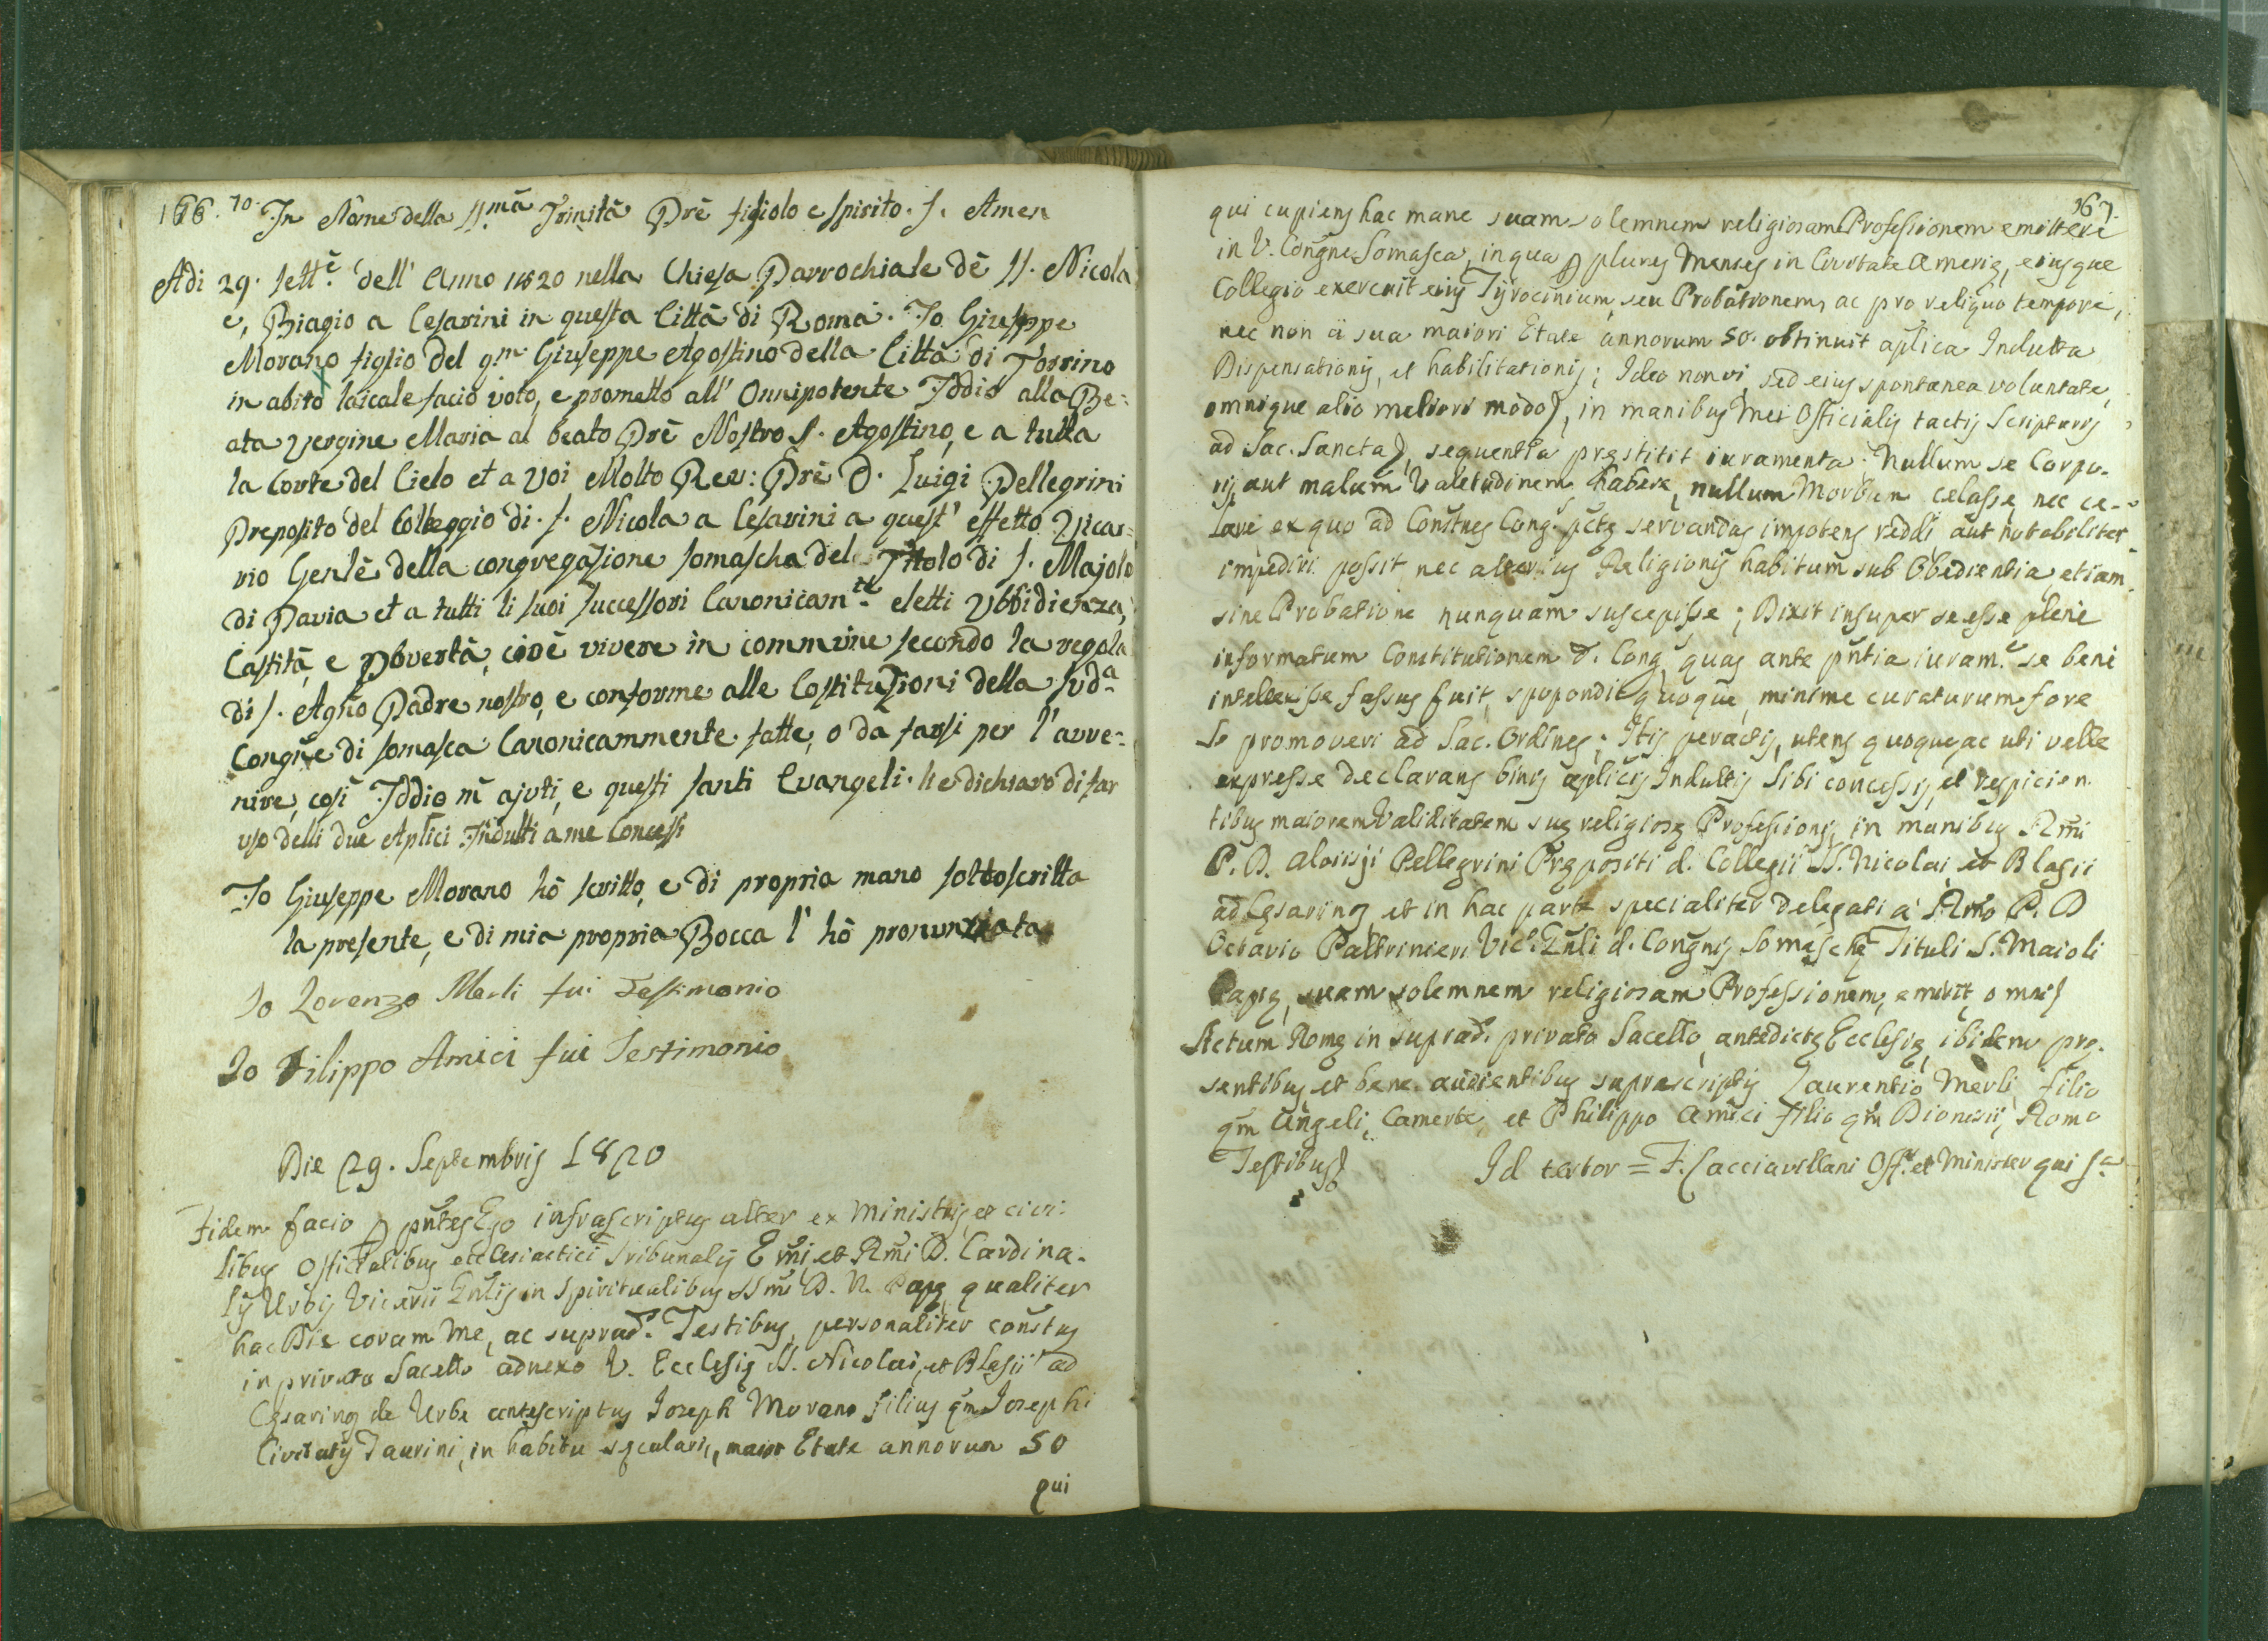 166. 70. In Nome della SS.mã Trinitã Prẽ figliolo e spirito. S. Amen
Adi 29. Settẽ. dell' Anno 1820 nella Chiesa Parrochiale dẽ SS. Nicola
e, Biagio a Cesarini in questa Città di Roma. Io Giuseppe
Morano figlio del qm. Giuseppe Agostino della Città di Torrino
in abito laicale facio voto, e prometto all' Onnipotente Iddio alla Be:
ata Vergine Maria al beato Prẽ Nostro S. Agostino, e a tutta
la Corte del Cielo et a Voi Molto Rev: Prẽ D. Luigi Pellegrini
Preposito del Colleggio di S. Nicola a Cesarini a quest' effetto Vicar:
rio Genlẽ della congregazione somascha del Titolo di S. Majolo
di Pavia et a tutti li suoi successori Canonicam.te eletti Ubbidienza,
Castità, e Povertà, cioè vivere in commune secondo la regola
di S. Agñō Padre nostro, e conforme alle Costituzioni della Sud.a
Congñe di somasca Canonicammente fatte, o da farsi per l'avve:
nire, così Iddio m̃ ajuti, e questi santi Evangeli. he dichiaro di far
uso delli due Aplici Indulti a me Concessi
Io Giuseppe Morano hò scritto, e di propria mano sottoscritta
la presente, e di mia propria Bocca l' hò pronunziata
Io Lorenzo Merli fui Testimonio
Io Filippo Amici fui Testimonio
Die 29. Septembris 1820
Fidem facio p pñtes Ego infrascriptus alter ex Ministris, et civi:
libus Officialibus ecclesiastici Tribunalis Em̃i, et Rm̃i D. Cardina.
lis Urbis Vicarii Gñlis in Spiritualibus SSm̃i D. N. Papę, qualiter
hac Die coram Me, ac suprad. Testibus, personaliter constus
in privato Sacello adnexo V. Ecclesię SS. Nicolai, et Blasii ad
Cęsarinos de Urbe antescriptus Joseph Morano filius qm̃ Josephi
Civitatis Taurini, in habitu sęculari, maior Etate annorum 50
qui
167.
qui cupiens hac mane suam solemnem religiosam Professionem emittere
in V. Congñe Somasca, in qua p plures Menses in Civitate Amerię, eiusque
Collegio exercuit eius Tyrocinium, seu Probationem, ac pro reliquo tempore,
nec non ã sua maiori Etate annorum 50. obtinuit aplica Indulta
Dispensationis, et habilitationis; Ideo non vi, sed eius spontanea voluntate,
omnique alio meliori modo, in manibus Mei Officialis tactis Scripturis
ad Sac. Sancta, sequentia pręstitit iuramenta: Nullum se Corpo-
ris, aut malum Valetudinem habere, nullum Morbum celasse, nec ce-
lare ex quo ad Constnes Cong. pctę servandas impotens reddi aut notabiliter
impediri possit, nec alterius Religionis habitum sub Obedientia etiam
sine Probatione nunquam suscepisse; Dixit insuper se esse plene
informatum Constitutionem d. Cong. quas ante pñtia iuram. se bene
intellexisse fassus fuit, spopondit quoque, minime curaturum fore
se promoveri ad Sac. Ordines; Itis peractis, utens quoque, ac uti velle
expresse declarans binis aplicis Indultis sibi concessis, et respicien
tibus maiorem Validitatem suę religiosę Professionis, in manibus Rm̃i
P. D. Aloisii Pellegrini Prępositi d. Collegii SS. Nicolai, et Blasii
ad Cęsarinos, et in hac parte specialiter delegati a Rm̃o P. D
Octavio Paltrinieri Vic. Gñli d. Congñis Somaschę Tituli S. Maioli
Papię, suam solemnem religiosam Professionem, emisit, omnes
Actum Romę in suprad. privato Sacello, antedictę Ecclesię, ibidem pre.
sentibus, et bene audientibus suprascriptis Laurentio Merli filio
qm̃ Angeli, Camerte, et Philippo Amici filio qm̃ Dionisii, Romo
Testibus Id testor = F. Cacciavillani Off. et Minister qui s.a